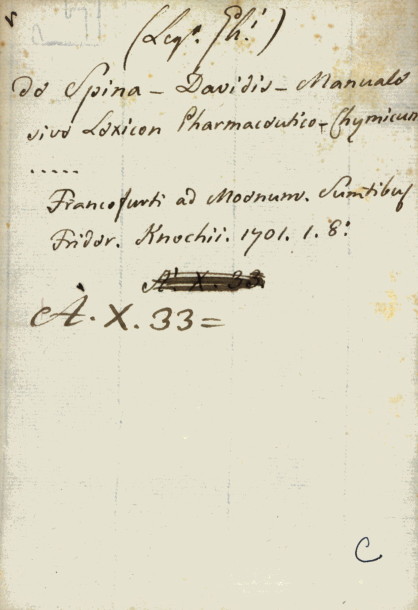 (Legº. Phⁱ.)
de Spina – Davidis – Manuale
sive Lexicon Pharmaceutico-Chymicum
.....
Francofurti ad Moenum. Sumtibus
Frider. Knochii. 1701. 1. 8º
A. X. 33
A. X. 33 =
C